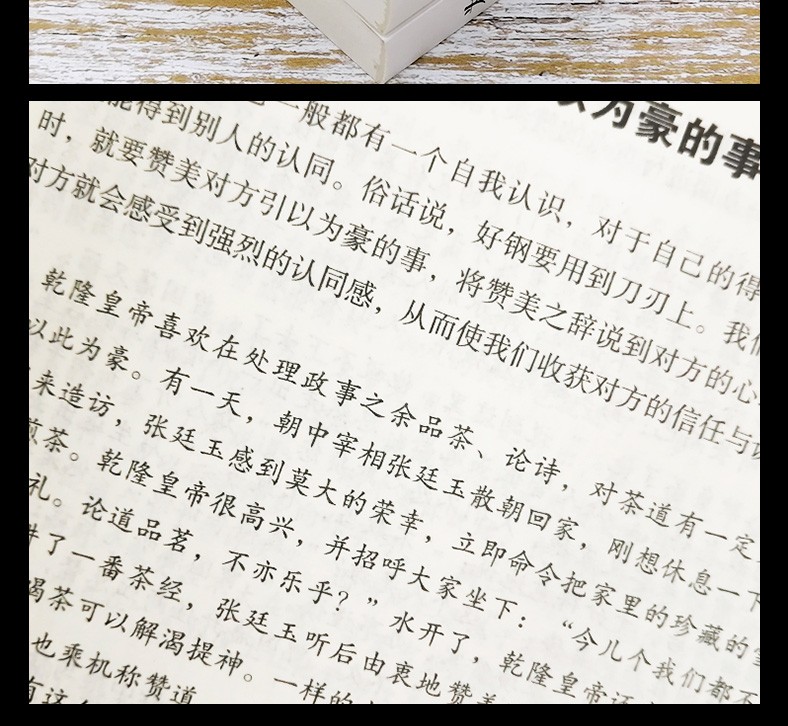 以为豪的事
一般都有一个自我认识，对于自己的得
能得到别人的认同。俗话说，好钢要用到刀刃上。我们
时，就要赞美对方引以为豪的事，将赞美之辞说到对方的心
对方就会感受到强烈的认同感，从而使我们收获对方的信任与
乾隆皇帝喜欢在处理政事之余品茶、论诗，对茶道有一定
以此为豪。有一天，朝中宰相张廷玉散朝回家，刚想休息一下
来造访，张廷玉感到莫大的荣幸，立即命令把家里的珍藏的
煎茶。乾隆皇帝很高兴，并招呼大家坐下：“今儿个我们都不
礼。论道品茗，不亦乐乎？”水开了，乾隆皇帝
了一番茶经，张廷玉听后由衷地赞美
喝茶可以解渴提神。一样的
也乘机称赞道
有这